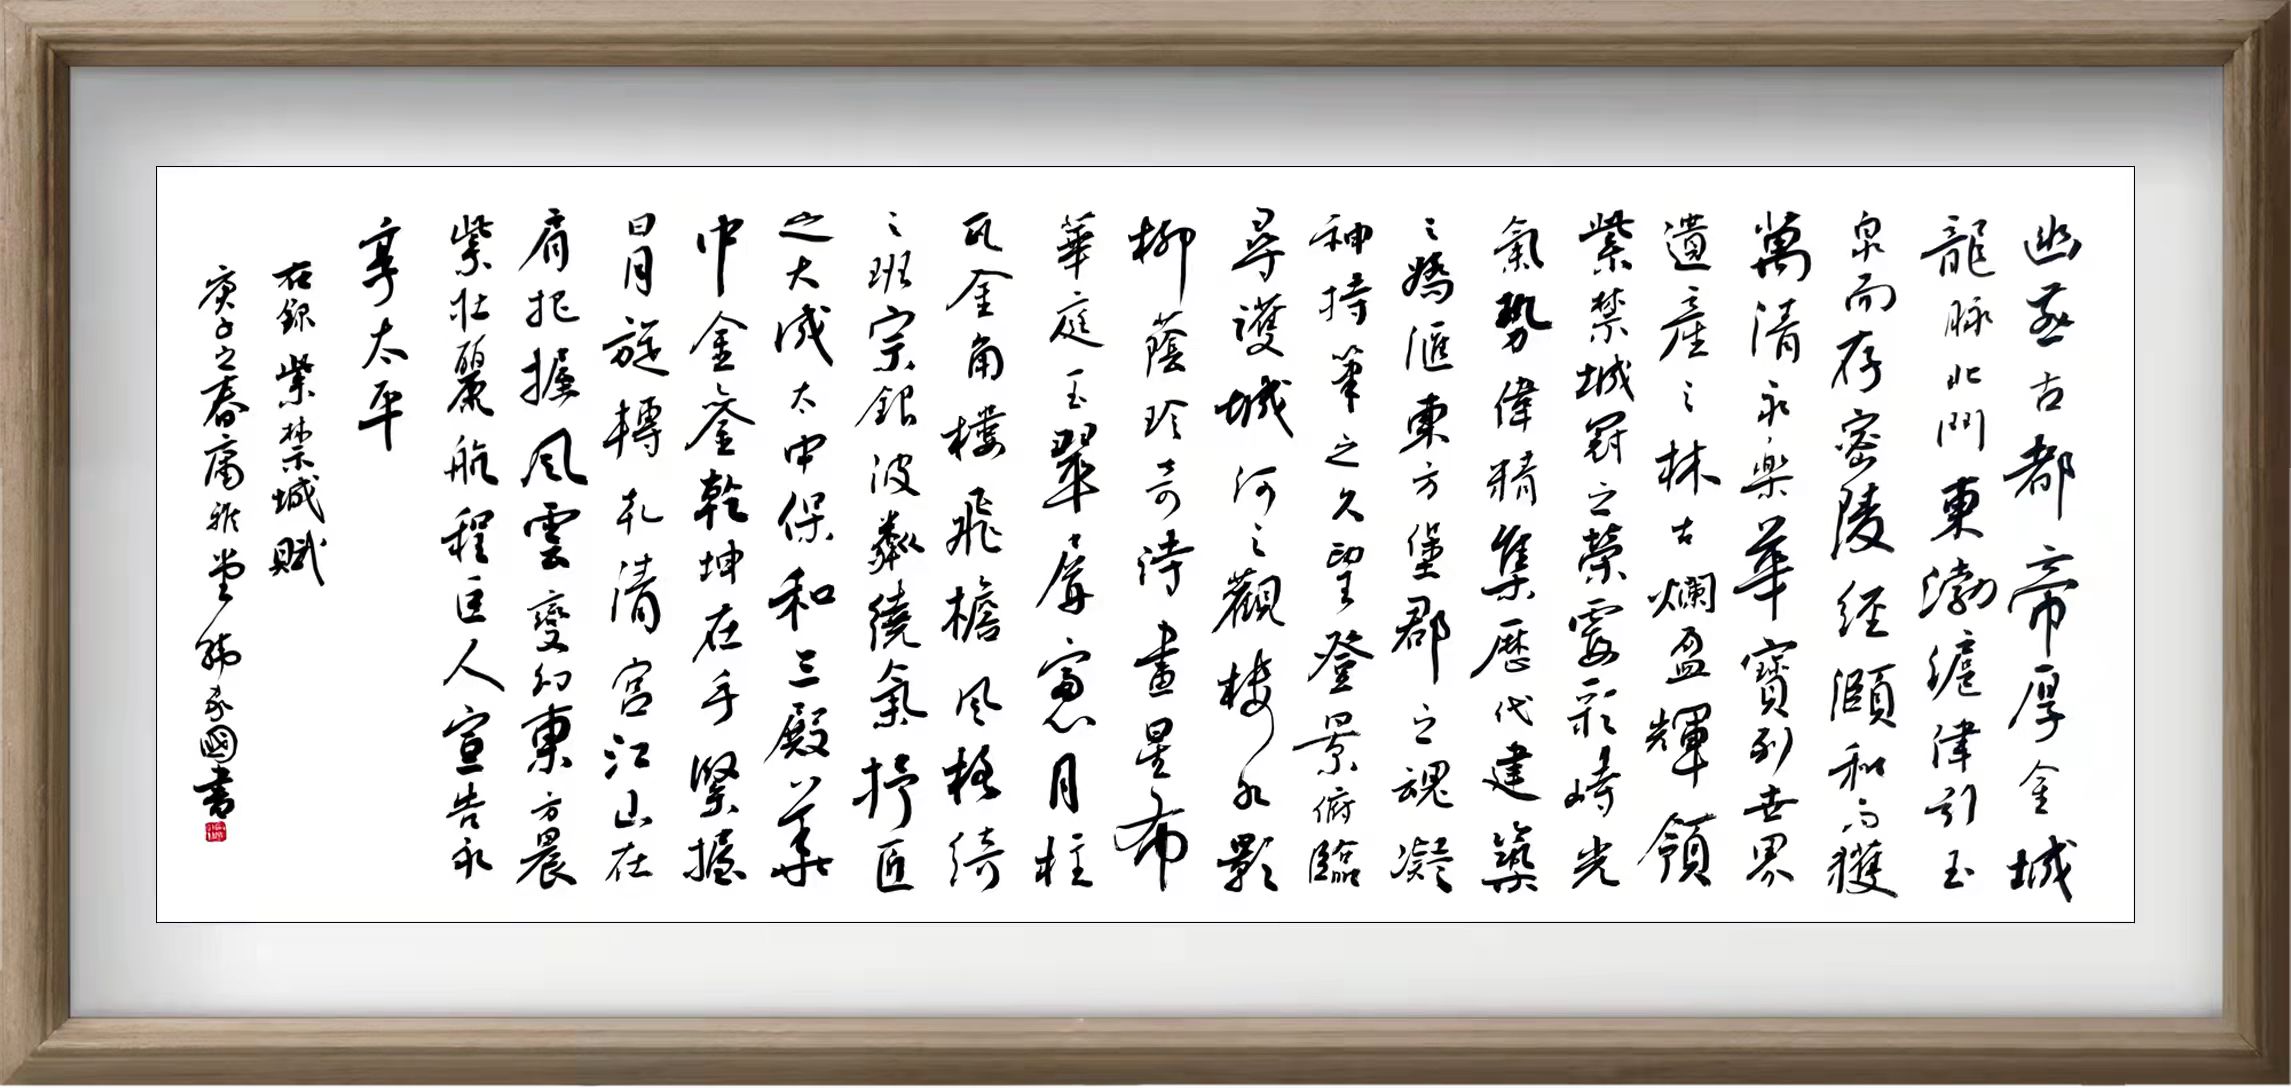 幽燕古都帝厚金城
龍脉北門東渤滬津引玉
泉而存密陵經頤和而獲
萬清永樂華寶列世界
遺産之林古爛盈輝領
紫禁城冠之榮霞彩崎光
氣勢偉精集歷代建築
之嬌滙東方堡郡之魂凝
神持筆之久望登景俯臨
尋護城河之觀樓水影
柳蔭珍奇詩畫星布
華庭玉翠之屏窗月柱
瓦金角樓飛檐風格綺
之班宗銀波粼繞氣抒匠
之大成太中保和三殿八華
中金鑾乾坤在手緊握
日月旋轉乾清宮江山在
肩把握風雲變幻東方晨
紫壯麗航程匠人宣告永
享太平
右録紫禁城賦
庚子之春庸雅堂韓家國書